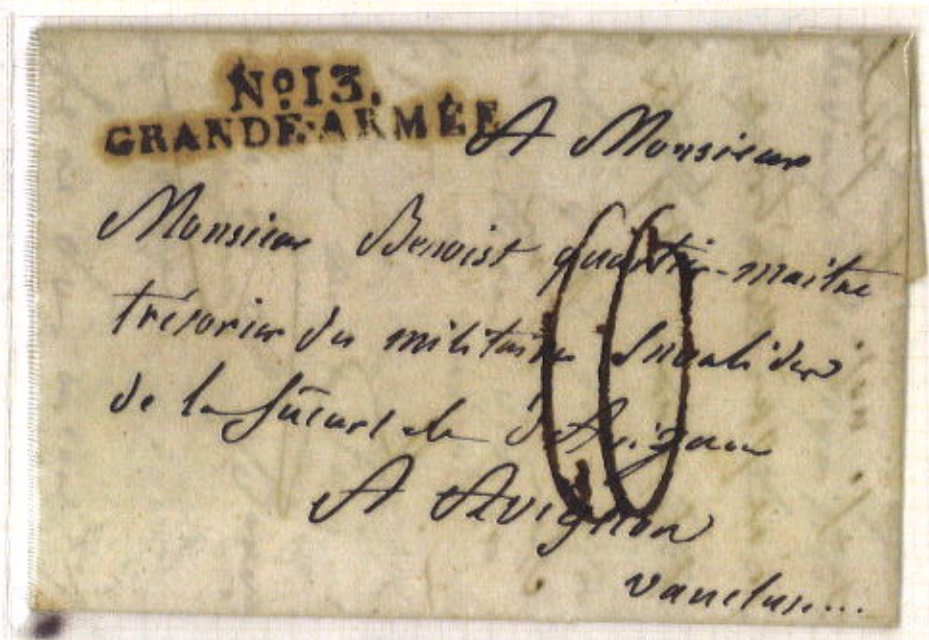 No. 13.
GRANDE-ARMÉE
A Monsieur
Monsieur Benoist quartier-maitre
trésorier des militaires Invalides
de la Sucursale d'Avignon
A Avignon
vaucluse...